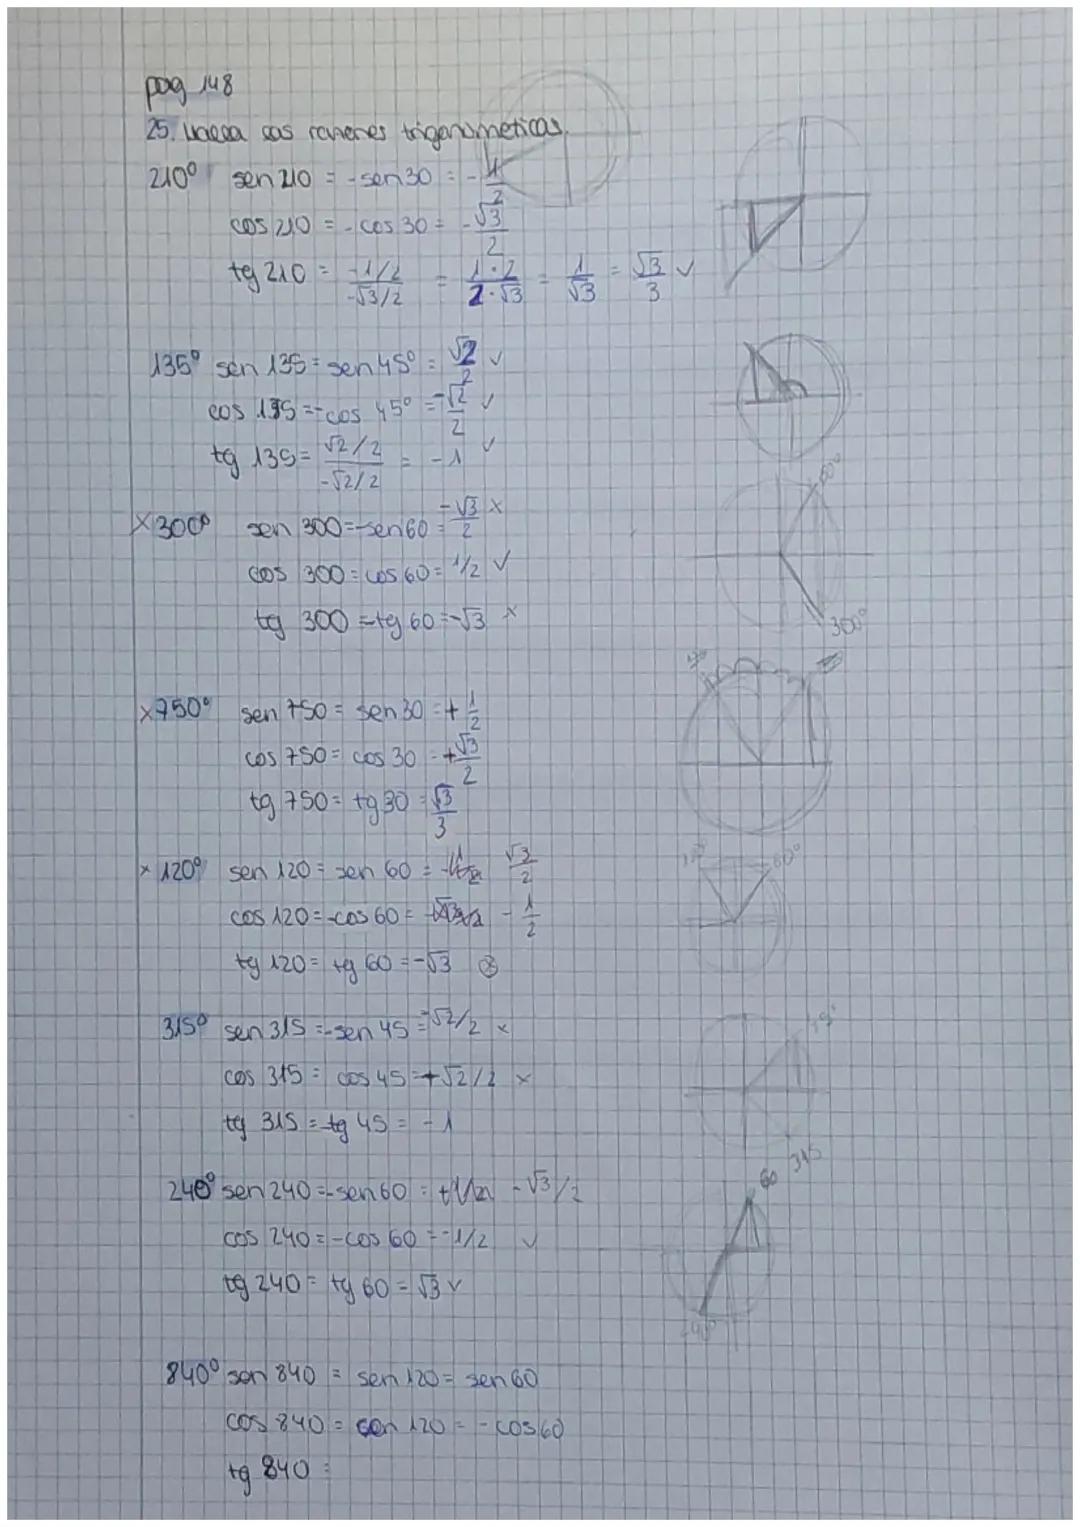 pag 148
25. las trigonometricas.
210° sen 210 = -sen 30 = -1/2
cos 210 = -cos 30 = -√3/2
tg 210 = (-1/2)/(-√3/2) = (1·2)/(2·√3) = 1/√3 = √3/3 ✓
135° sen 135 = sen 45° = √2/2 ✓
cos 135 = -cos 45° = -√2/2 ✓
tg 135 = (√2/2)/(-√2/2) = -1 ✓
× 300° sen 300 = -sen 60 = -√3/2 ×
cos 300 = cos 60 = 1/2 ✓
tg 300 = -tg 60 = -√3 ×
60°
300°
× 750° sen 750 = sen 30 = + 1/2
cos 750 = cos 30 = +√3/2
tg 750 = tg 30 = √3/3
× 120° sen 120 = sen 60 = √3/2
cos 120 = -cos 60 = -1/2
tg 120 = tg 60 = -√3 ⊗
60°
315° sen 315 = -sen 45 = -√2/2 ×
cos 315 = cos 45 = +√2/2 ×
tg 315 = -tg 45 = -1
45°
315
240° sen 240 = -sen 60 = -√3/2
cos 240 = -cos 60 = -1/2 ✓
tg 240 = tg 60 = √3 ✓
60
240°
840° sen 840 = sen 120 = sen 60
cos 840 = 120 = -cos 60
tg 840 =